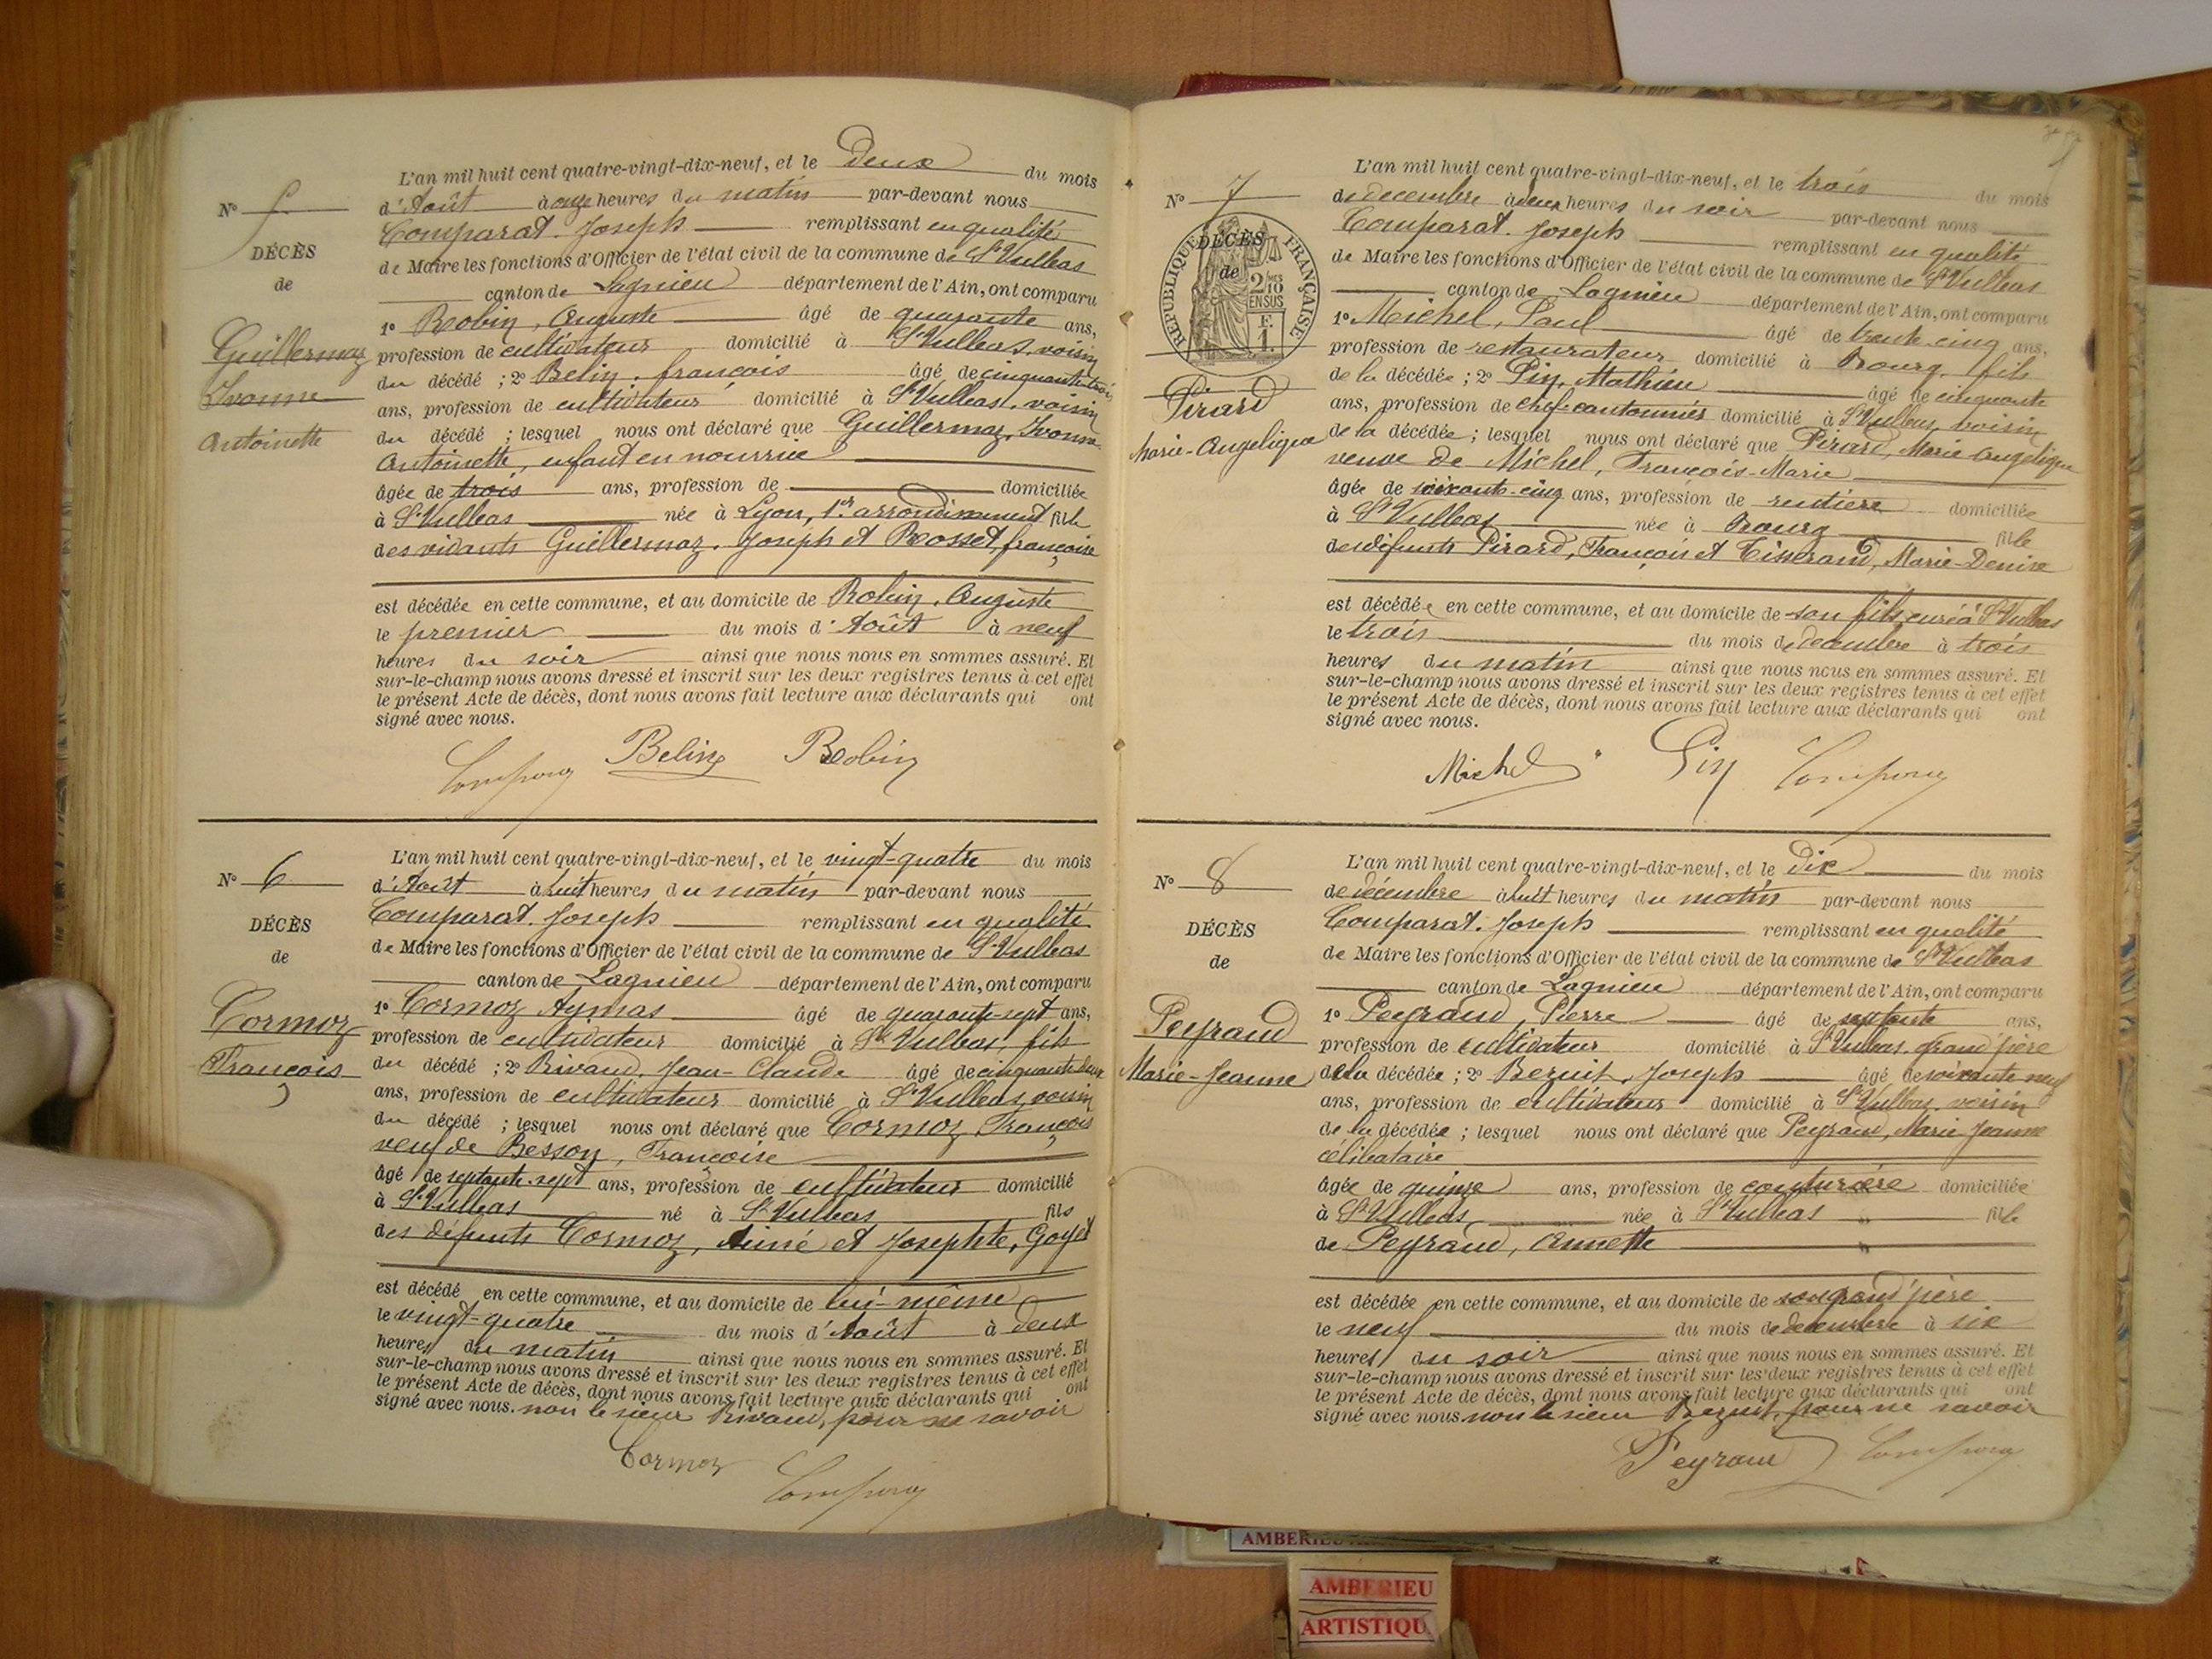 L'an mil huit cent quatre-vingt-dix-neuf, et le Deux du mois
d'Août à onze heures du matin par-devant nous
Comparat. Joseph remplissant en qualité
de Maire les fonctions d'Officier de l'état civil de la commune de St Vulbas
canton de Lagnieu département de l'Ain, ont comparu
1º Robin, Auguste âgé de quarante ans,
profession de cultivateur domicilié à St Vulbas, voisin
du décédé ; 2º Belin, françois âgé de cinquante trois
ans, profession de cultivateur domicilié à St Vulbas, voisin
du décédé ; lesquel nous ont déclaré que Guillermaz, Ivonne
Antoinette, enfant en nourrice
âgée de trois ans, profession de domiciliée
à St Vulbas née à Lyon, 1er arrondissement fille
des vivants Guillermaz, Joseph et Rosset, françoise
est décédée en cette commune, et au domicile de Robin, Auguste
le premier du mois d'Août à neuf
heures du soir ainsi que nous nous en sommes assuré. Et
sur-le-champ nous avons dressé et inscrit sur les deux registres tenus à cet effet
le présent Acte de décès, dont nous avons fait lecture aux déclarants qui ont
signé avec nous.
Belin Robin
Nº 5
DÉCÈS
de
Guillermaz
Ivonne
Antoinette
Nº 6
DÉCÈS
de
Cormoz
François
L'an mil huit cent quatre-vingt-dix-neuf, et le vingt-quatre du mois
d'Août à huit heures du matin par-devant nous
Comparat. Joseph remplissant en qualité
de Maire les fonctions d'Officier de l'état civil de la commune de St Vulbas
canton de Lagnieu département de l'Ain, ont comparu
1º Cormoz Aymas âgé de quarante-sept ans,
profession de cultivateur domicilié à St Vulbas, fils
du décédé ; 2º Rivaud, Jean-Claude âgé de cinquante deux
ans, profession de cultivateur domicilié à St Vulbas, voisin
du décédé ; lesquel nous ont déclaré que Cormoz, François
veuf de Besson, Françoise
âgé de septante-sept ans, profession de cultivateur domicilié
à St Vulbas né à St Vulbas fils
des défunts Cormoz, Aimé et Josephte, Goyet
est décédé en cette commune, et au domicile de lui-même
le vingt-quatre du mois d'Août à deux
heures du matin ainsi que nous nous en sommes assuré. Et
sur-le-champ nous avons dressé et inscrit sur les deux registres tenus à cet effet
le présent Acte de décès, dont nous avons fait lecture aux déclarants qui ont
signé avec nous. non le sieur Rivaud, pour ne savoir
Cormoz
Nº 7
RÉPUBLIQUE FRANÇAISE
DÉCÈS
de
2 10MES
EN SUS
F.
1.
Pirard
Marie-Angelique
L'an mil huit cent quatre-vingt-dix-neuf, et le trois du mois
de decembre à deux heures du soir par-devant nous
Comparat. Joseph remplissant en qualité
de Maire les fonctions d'Officier de l'état civil de la commune de St Vulbas
canton de Lagnieu département de l'Ain, ont comparu
1º Michel, Paul âgé de trente-cinq ans,
profession de restaurateur domicilié à Bourg, fils
de la décédée ; 2º Pin, Mathieu âgé de cinquante
ans, profession de chef-cantonnier domicilié à St Vulbas, voisin
de la décédée ; lesquel nous ont déclaré que Pirard, Marie Angelique
veuve de Michel, François-Marie
âgée de soixante-cinq ans, profession de rentière domiciliée
à St Vulbas née à Bourg fille
des défunts Pirard, François et Tisserand, Marie-Denise
est décédée en cette commune, et au domicile de son fils, curé à St Vulbas
le trois du mois de decembre à trois
heures du matin ainsi que nous nous en sommes assuré. Et
sur-le-champ nous avons dressé et inscrit sur les deux registres tenus à cet effet
le présent Acte de décès, dont nous avons fait lecture aux déclarants qui ont
signé avec nous.
Michel Pin
Nº 8
DÉCÈS
de
Peyraud
Marie-Jeanne
L'an mil huit cent quatre-vingt-dix-neuf, et le Dix du mois
de décembre à huit heures du matin par-devant nous
Comparat. Joseph remplissant en qualité
de Maire les fonctions d'Officier de l'état civil de la commune de St Vulbas
canton de Lagnieu département de l'Ain, ont comparu
1º Peyraud, Pierre âgé de septante ans,
profession de cultivateur domicilié à St Vulbas, grand'père
de la décédée ; 2º Bezuit, Joseph âgé de soixante neuf
ans, profession de cultivateur domicilié à St Vulbas, voisin
de la décédée ; lesquel nous ont déclaré que Peyraud, Marie Jeanne
célibataire
âgée de quinze ans, profession de couturière domiciliée
à St Vulbas née à St Vulbas fille
de Peyraud, Annette
est décédée en cette commune, et au domicile de son grand'père
le neuf du mois de decembre à six
heures du soir ainsi que nous nous en sommes assuré. Et
sur-le-champ nous avons dressé et inscrit sur les deux registres tenus à cet effet
le présent Acte de décès, dont nous avons fait lecture aux déclarants qui ont
signé avec nous non le sieur Bezuit, pour ne savoir
Peyraud
AMBERIEU
AMBERIEU
ARTISTIQU